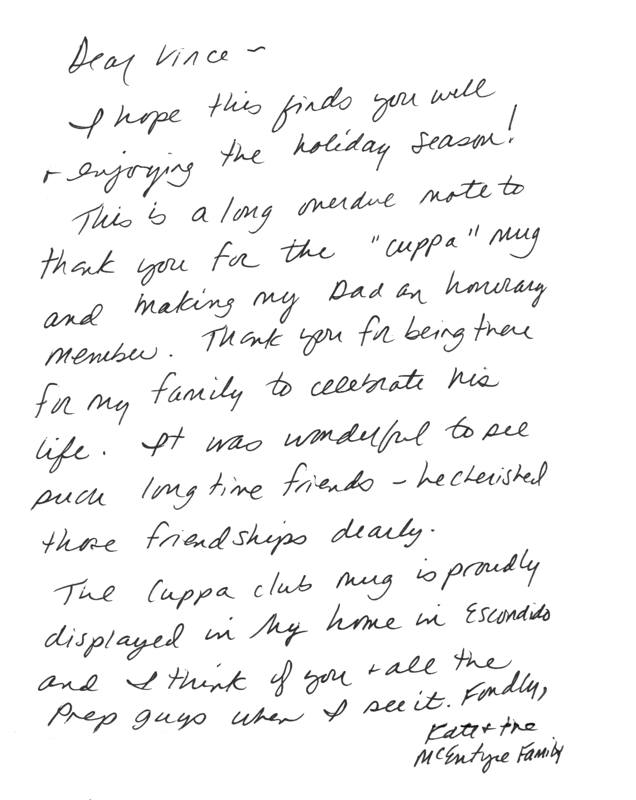 Dear Vince ~
I hope this finds you well
+ enjoying the holiday season!
This is a long overdue note to
thank you for the "cuppa" mug
and making my Dad an honorary
member. Thank you for being there
for my family to celebrate his
life. It was wonderful to see
such long time friends - he cherished
those friendships dearly.
The Cuppa club mug is proudly
displayed in my home in Escondido
and I think of you + all the
Prep guys when I see it. Fondly,
Kate + the
McEntyre Family